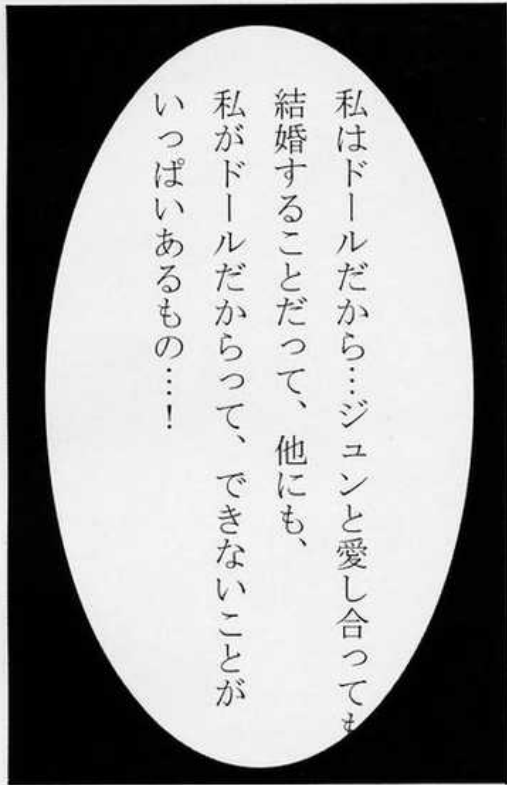 私はドールだから…ジュンと愛し合っても
結婚することだって、他にも、
私がドールだからって、できないことが
いっぱいあるもの…！